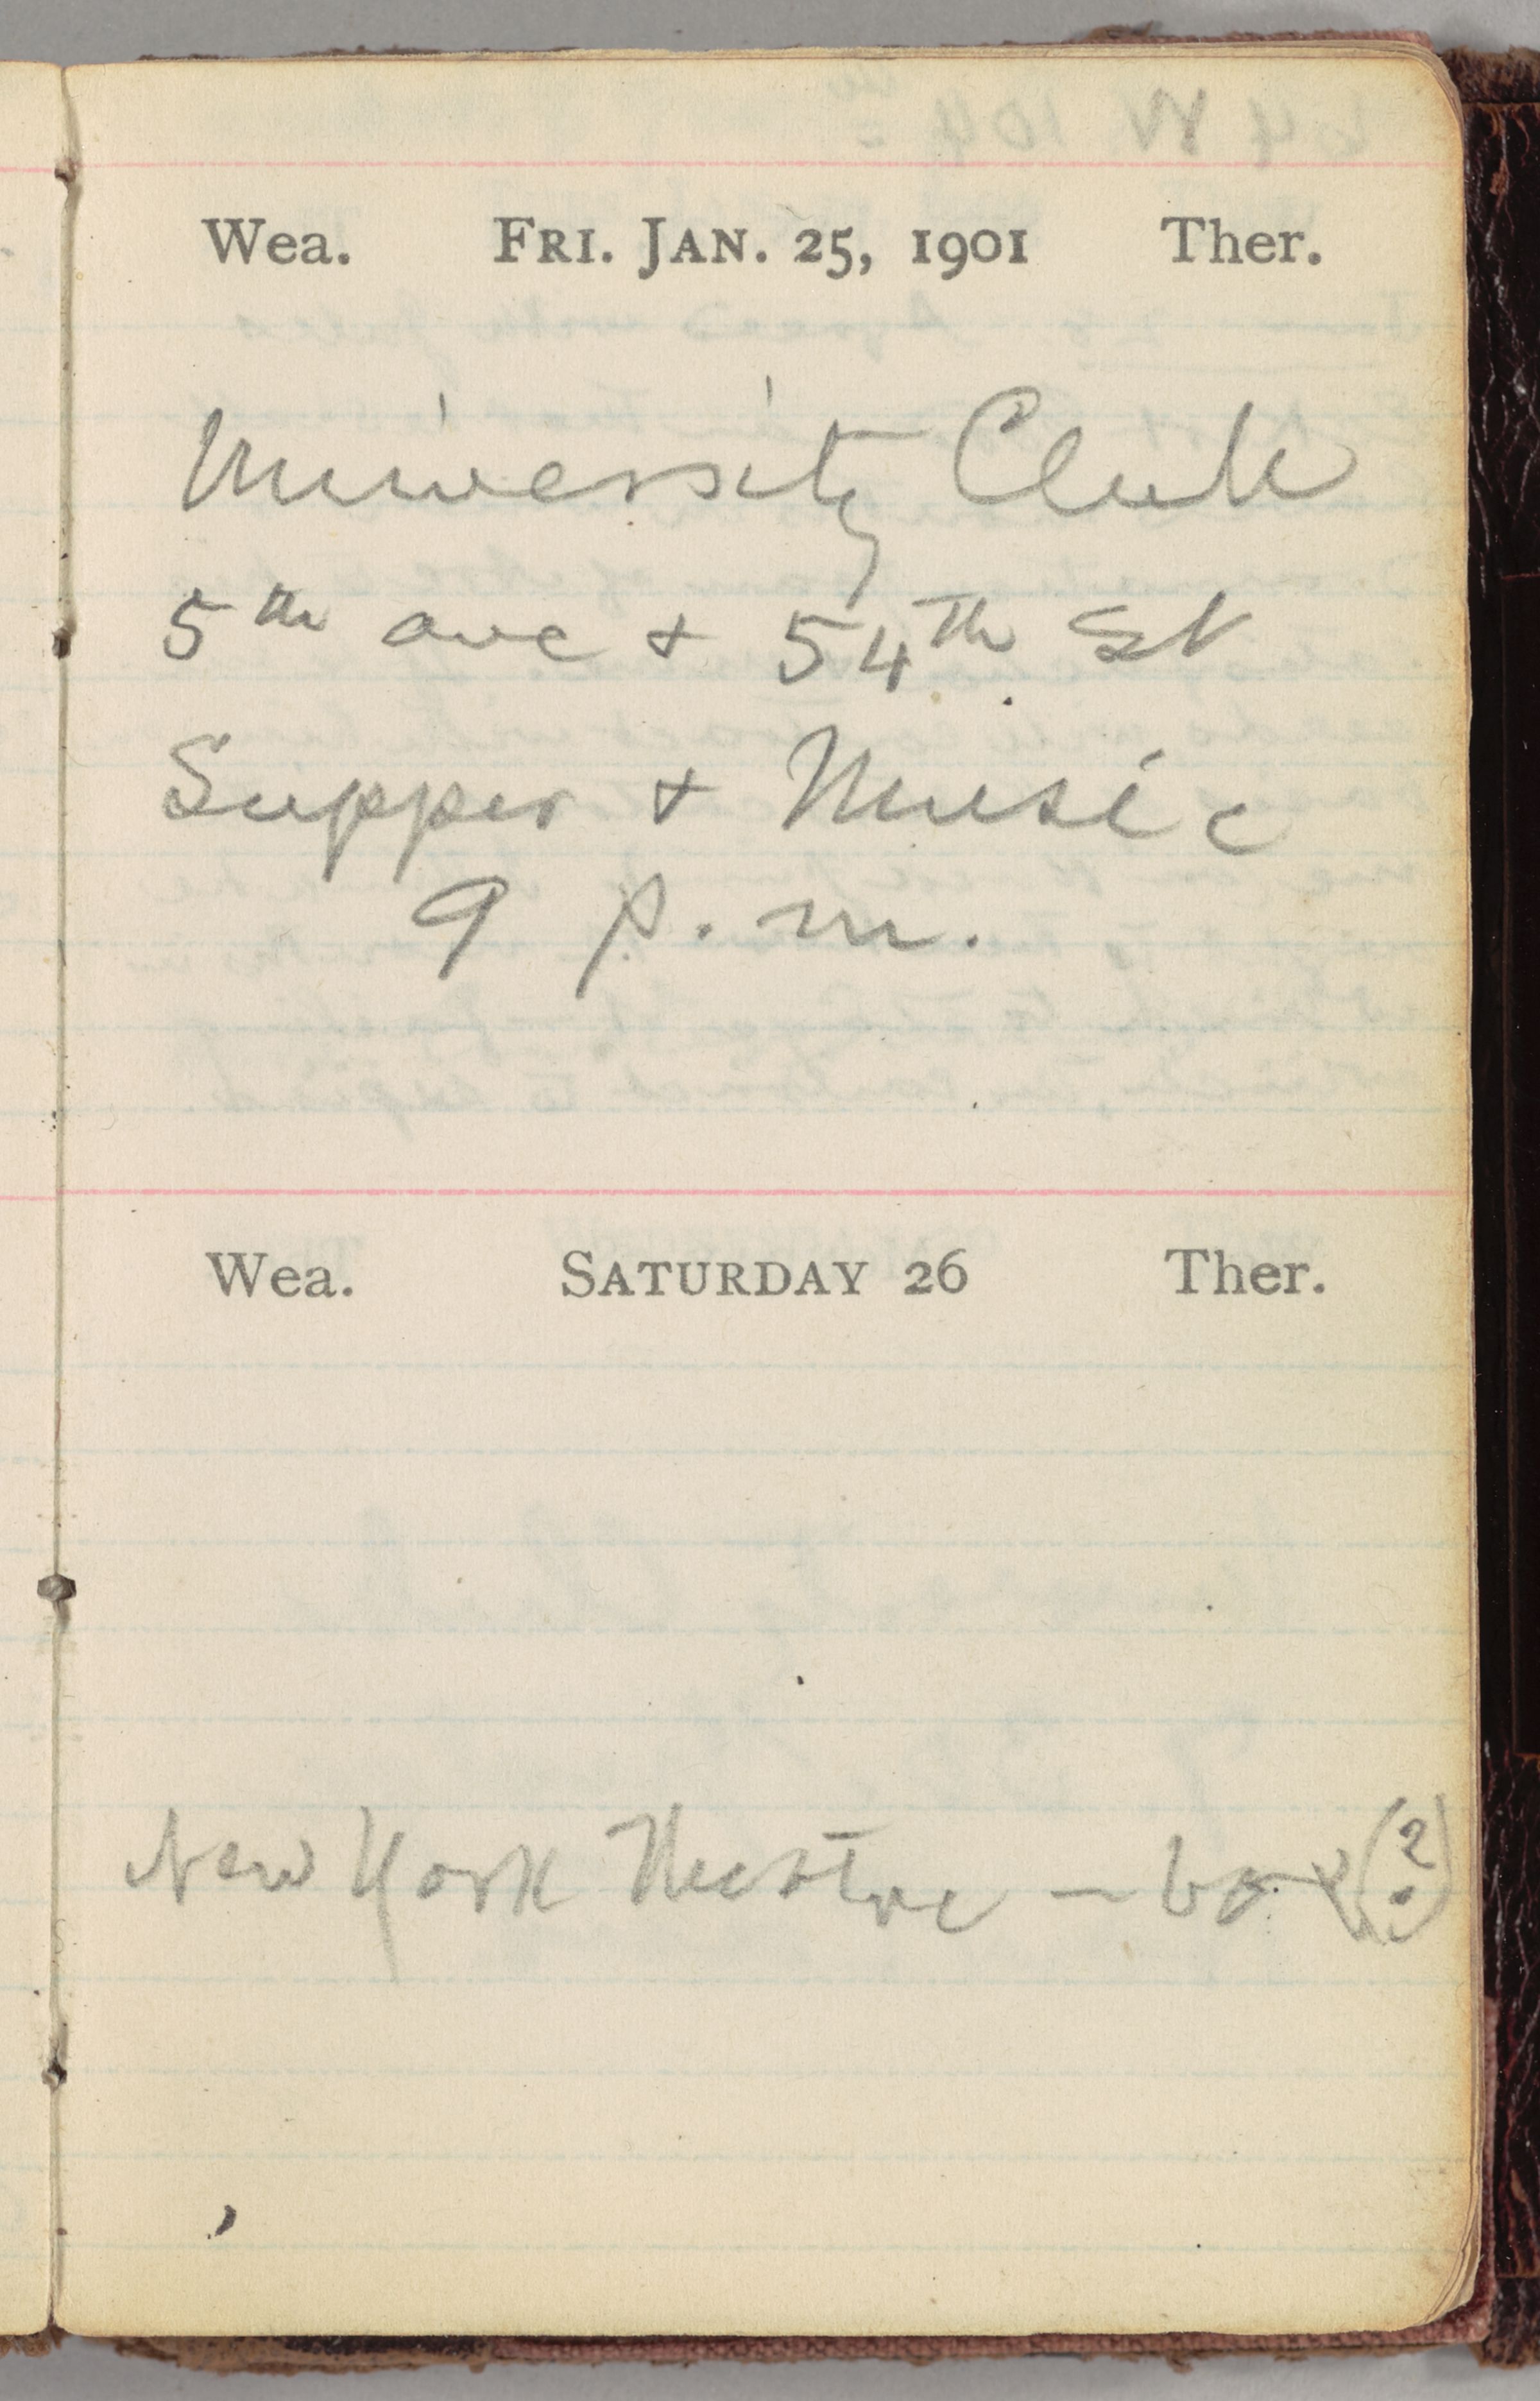 Wea. FRI. JAN. 25, 1901 Ther.
University Club
5th ave + 54th St
Supper + Music
9 p.m.
Wea. SATURDAY 26 Ther.
New York Theatre – box (?)